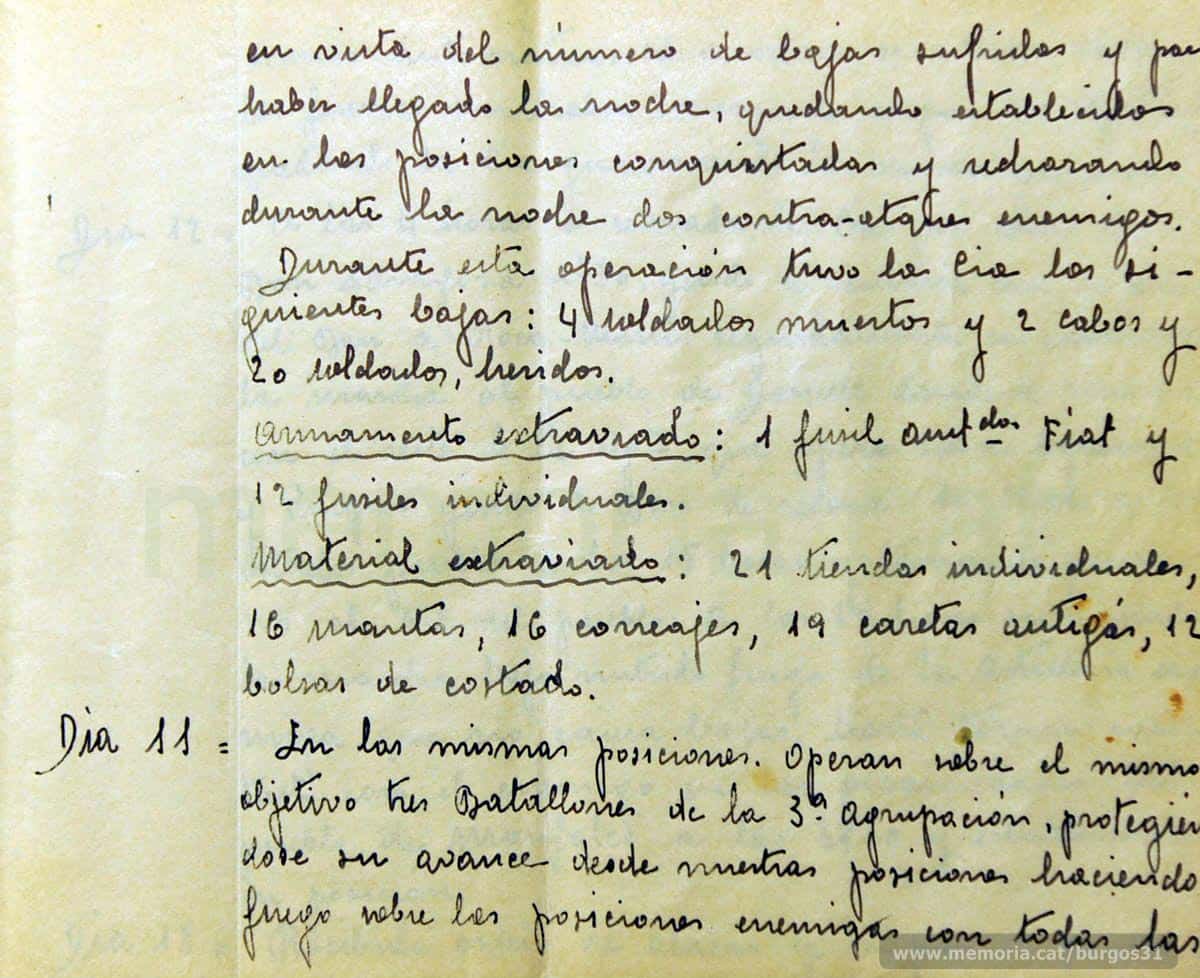 en vista del número de bajas sufridas y por
haber llegado la noche, quedando establecidos
en las posiciones conquistadas y rechazando
durante la noche dos contra-atques enemigos.
Durante esta operación tuvo la Cia las si-
guientes bajas: 4 soldados muertos y 2 cabos y
20 soldados, heridos.
Armamento extraviado: 1 fusil amt.dos Fiat y
12 fusiles individuales.
Material extraviado: 21 tiendas individuales,
16 mantas, 16 correajes, 19 caretas antigás, 12
bolsas de costado.
Dia 11 = En las mismas posiciones. Operan sobre el mismo
objetivo tres Batallones de la 3ª Agrupación, protegien
dose su avance desde nuestras posiciones haciendo
fuego sobre las posiciones enemigas con todas las
www.memoria.cat/burgos31